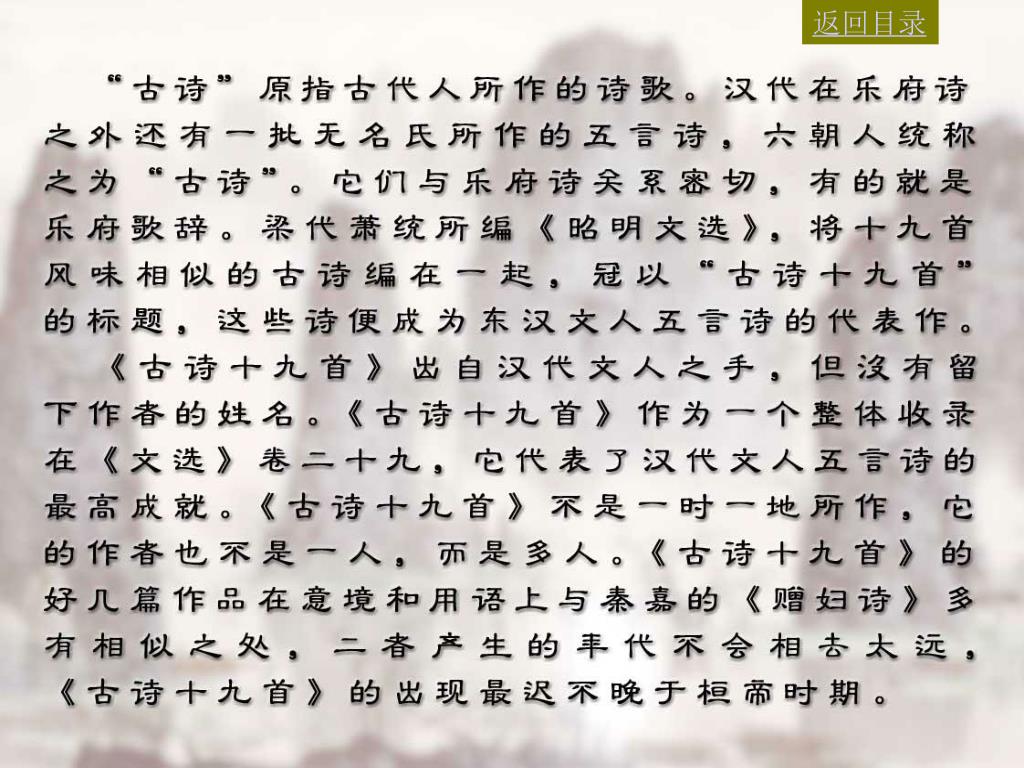 返回目录
“古诗”原指古代人所作的诗歌。汉代在乐府诗
之外还有一批无名氏所作的五言诗，六朝人统称
之为“古诗”。它们与乐府诗关系密切，有的就是
乐府歌辞。梁代萧统所编《昭明文选》，将十九首
风味相似的古诗编在一起，冠以“古诗十九首”
的标题，这些诗便成为东汉文人五言诗的代表作。
《古诗十九首》出自汉代文人之手，但没有留
下作者的姓名。《古诗十九首》作为一个整体收录
在《文选》卷二十九，它代表了汉代文人五言诗的
最高成就。《古诗十九首》不是一时一地所作，它
的作者也不是一人，而是多人。《古诗十九首》的
好几篇作品在意境和用语上与秦嘉的《赠妇诗》多
有相似之处，二者产生的年代不会相去太远，
《古诗十九首》的出现最迟不晚于桓帝时期。